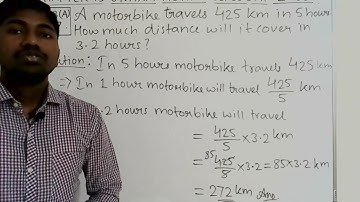 (A) A motorbike travels 425 km in 5 hours.
How much distance will it cover in
3.2 hours?
ution: In 5 hours motorbike travels 425 km
⇒ In 1 hour motorbike will travel 425/5 km
.2 hours motorbike will travel
= 425/5 × 3.2 km
= 85 425/5 × 3.2 = 85 × 3.2 km
= 272 km Ans